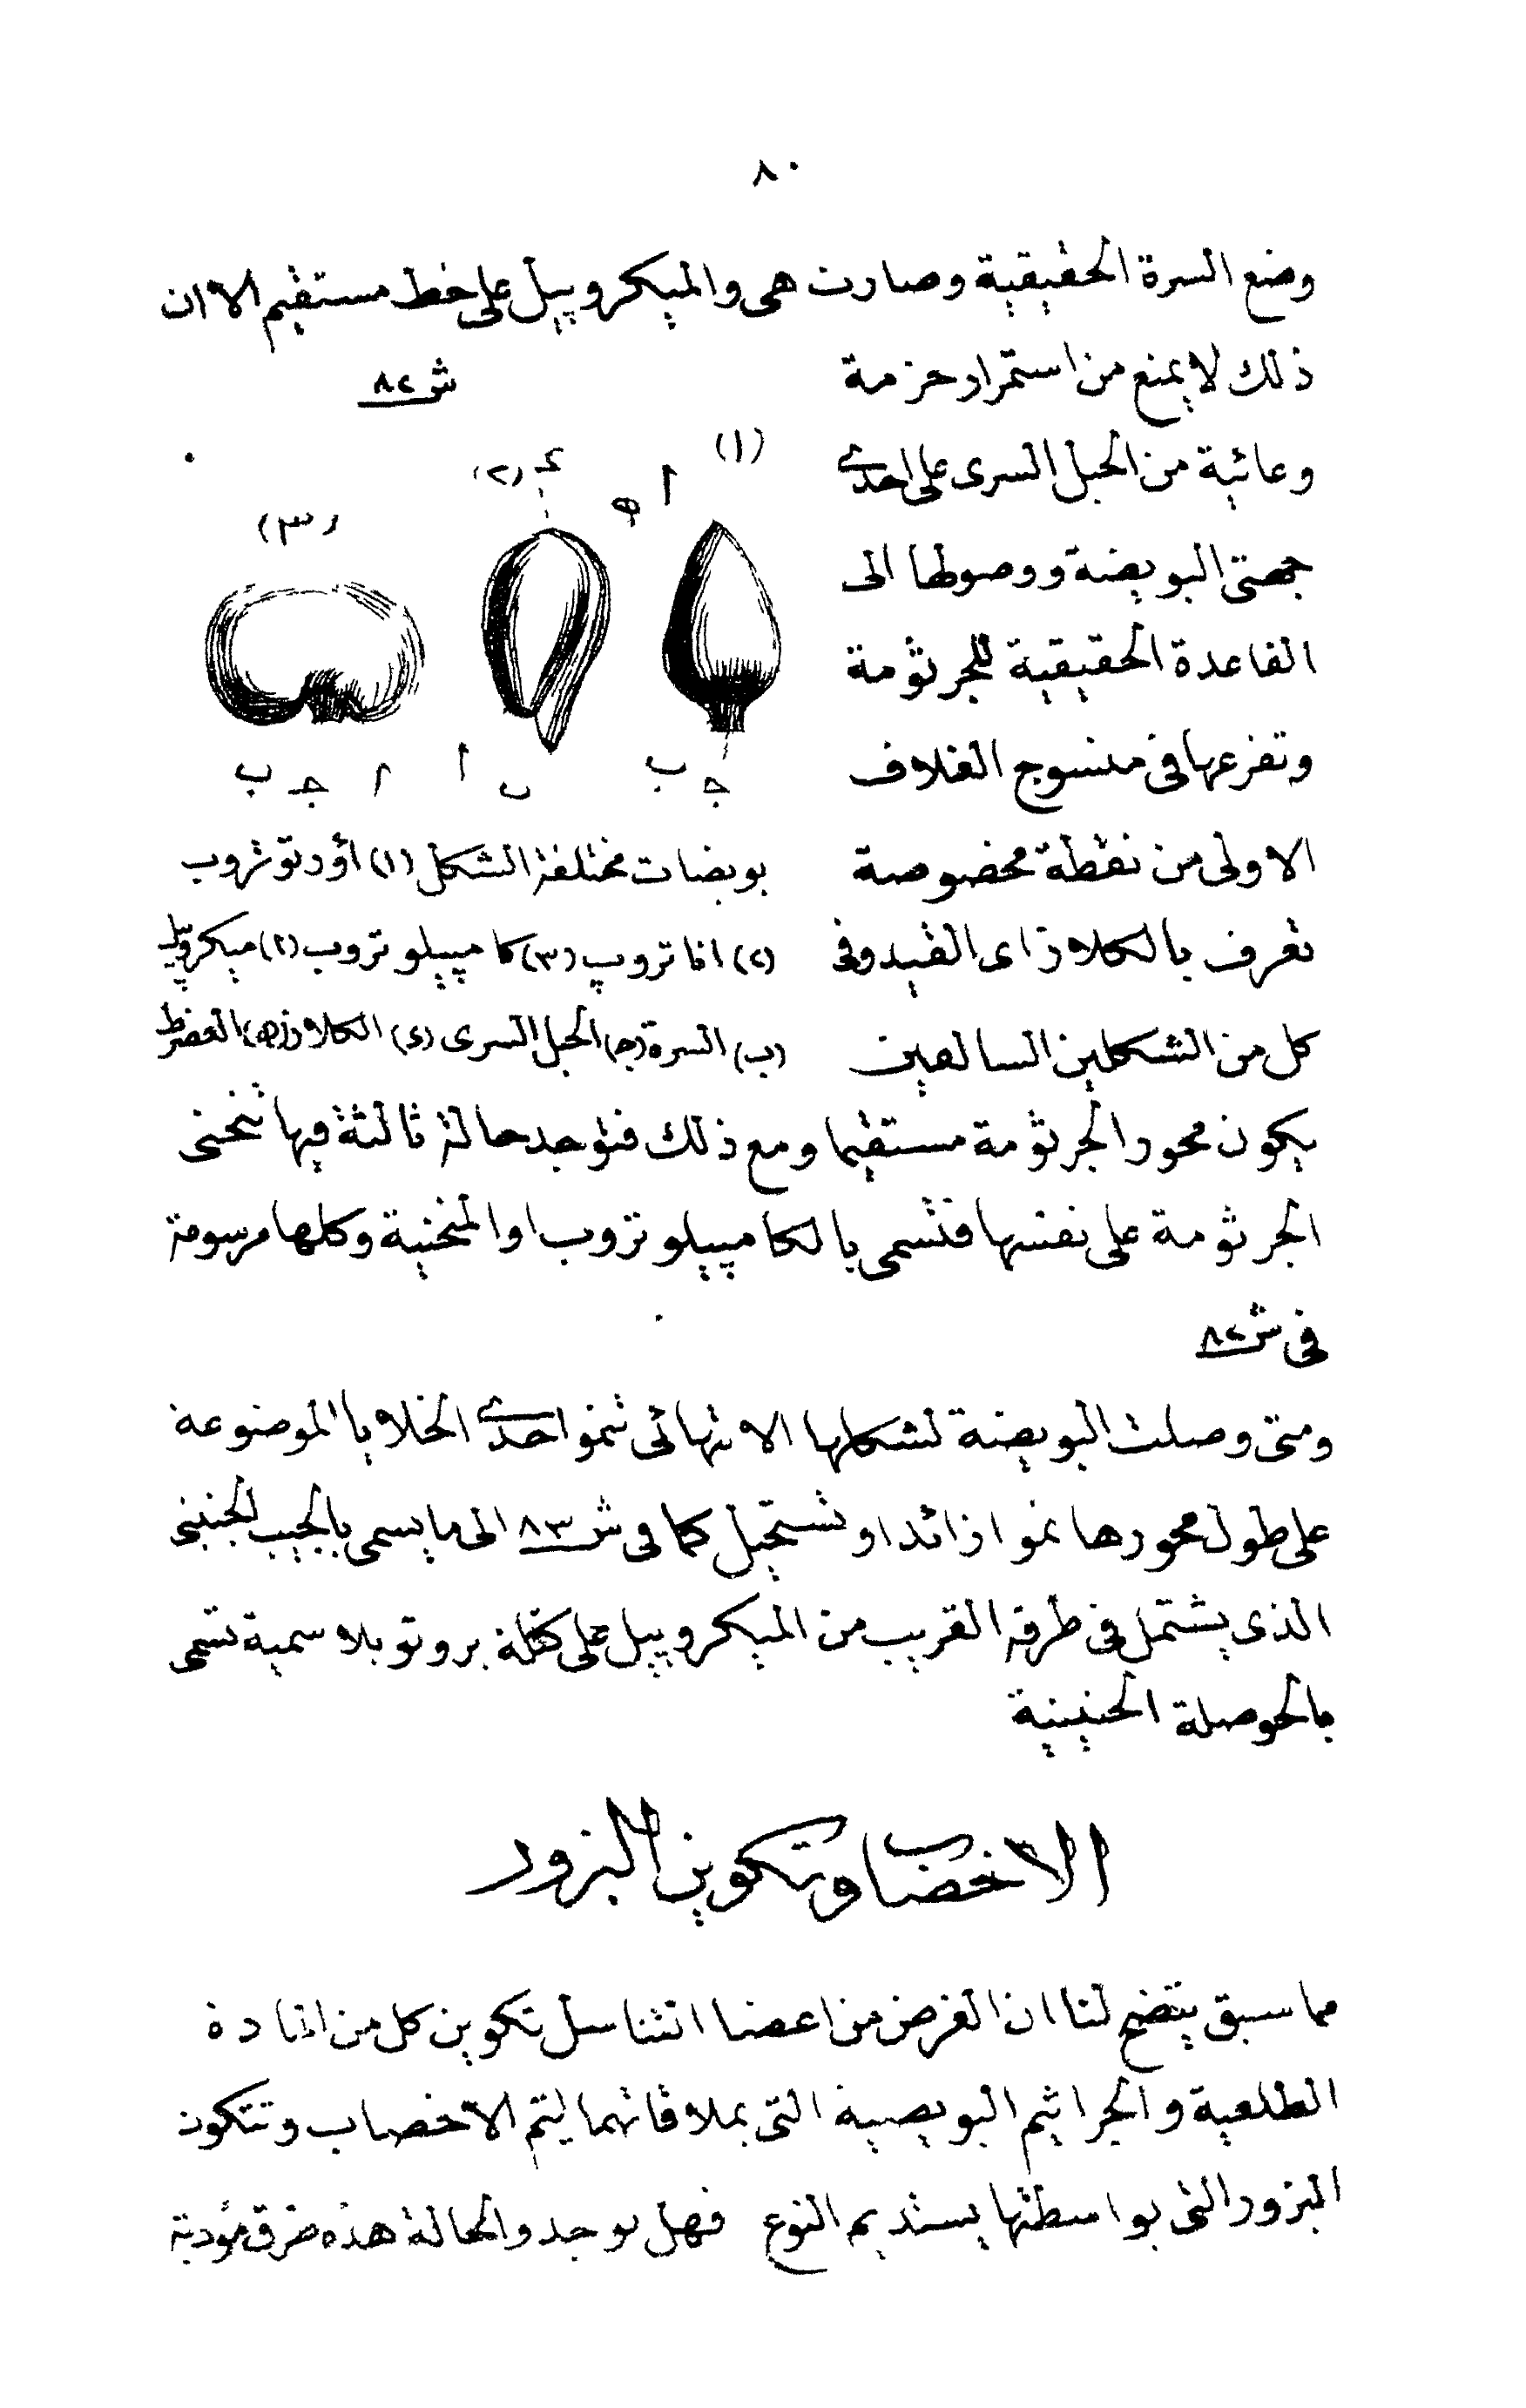 ٨٠
وضع السرة الحقيقية وصارت هى والميكروپيل على خط مستقيم الا ان
ذلك لا يمنع من استمرار حزمة
وعائية من الحبل السرى على احدى
جهتى البويضة ووصولها الى
القاعدة الحقيقية للجرثومة
وتفرعها فى منسوج الغلاف
الاولى من نقطة مخصوصة
تعرف بالكلازا اى القيد وفى
كل من الشكلين السالفين
ش ٨٢
(١)
ا
(٢)
(٣)
ب ج ا
ا ب
ب ج
بويضات مختلفة الشكل (١) أورتوتروب
(٢) اناتروپ (٣) كامپيلوتروب (ا) ميكروپيل
(ب) السرة (ج) الحبل السرى (د) الكلازا (ه)
يكون محور الجرثومة مستقيما ومع ذلك فتوجد حالة ثالثة فيها تنحنى
الجرثومة على نفسها فتسمى بالكامپيلوتروب او المنحنية وكلها مرسومة
فى ش ٨٢
ومتى وصلت البويضة لشكلها الانتهائى تنمو احدى الخلايا الموضوعة
على طول محورها نموا زائدا وتستحيل كما فى ش ٨٣ الى ما يسمى بالجيب الجنينى
الذى يشتمل فى طرفه القريب من الميكروپيل على كتلة بروتوبلاسمية تسمى
بالحوصلة الجنينية
الاخصاب وتكوين البزور
مما سبق يتضح لنا ان الغرض من اعضا التناسل تكوين كل من المادة
الطلعية والجراثيم البويضية التى بملاقاتهما يتم الاخصاب وتتكون
البزور التى بواسطتها يستديم النوع فهل يوجد والحالة هذه طرق مؤدية